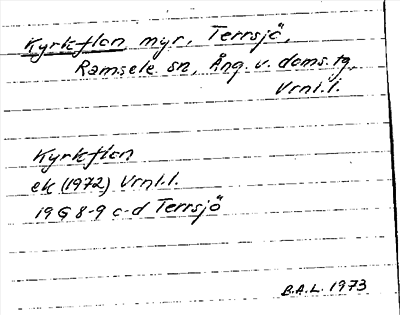 Kyrkflon myr, Terrsjö,
Ramsele sn, Ång. v. doms. tg,
Vrnl. l.
Kyrkflon
ek (1972) Vrnl. l.
19 G 8-9 c-d Terrsjö
B.A.L. 1973